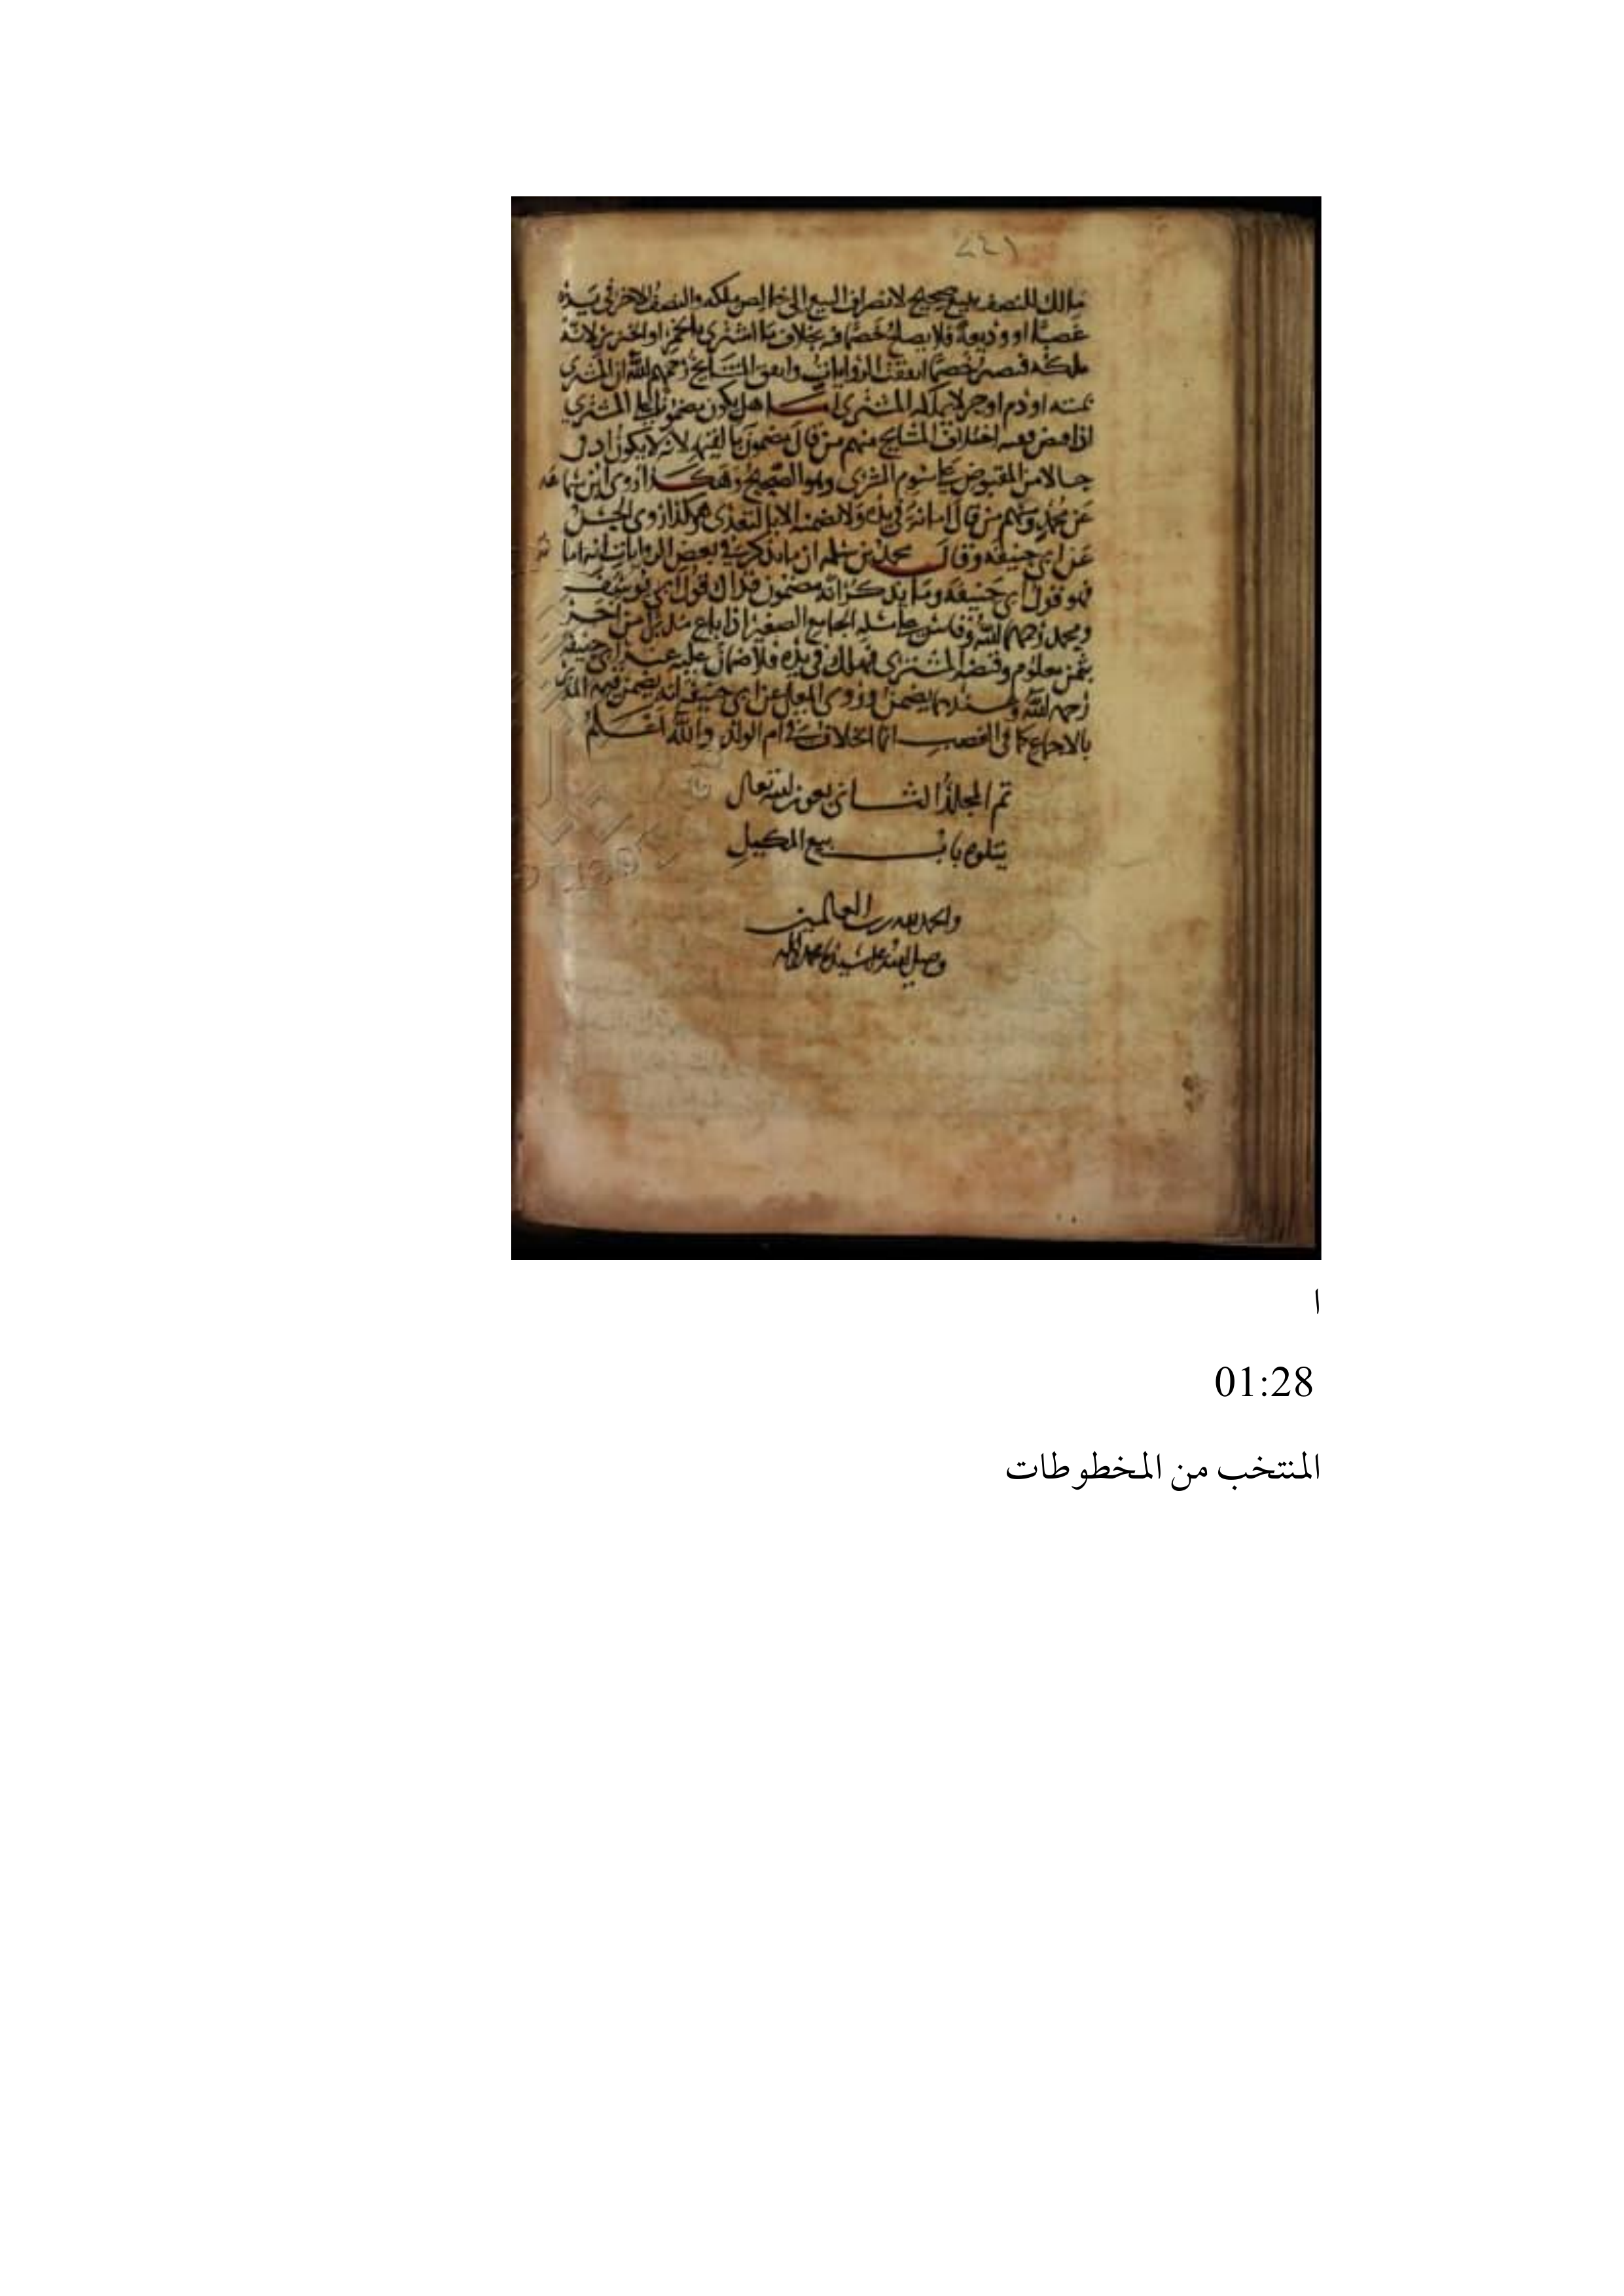 مالك للنصف ببيع صحيح لانصراف البيع الى خالص ملكه والنصف الاخر في يده
غصبا او وديعة فلا يصلح خصما فيه بخلاف ما اشترى بالخمر او الخنزير لانه
ملكه فيصير خصما اتفقت الروايات واتفق المشايخ رحمهم الله ان المشترى
بميتة او دم او حر لا يملكه المشترى اما هل يكون مضمونا على المشترى
اذا قبض فيه اختلاف المشايخ منهم من قال مضمون بالقيمة لانه لا يكون ادنى
حالا من المقبوض على سوم الشرى وهو الصحيح وهكذا روى ابن سماعه
عن محمد ومنهم من قال امانة في يده ولا يضمنه الا بالتعدى هكذا روى الحسن
عن ابي حنيفة وقال محمد بن سلمه ان ما يذكر في بعض الروايات انه امانة
فهو قول ابي حنيفة وما يذكر انه مضمون فذاك قول ابي يوسف
ومحمد رحمهم الله وقاس على مسلة الجامع الصغير اذا باع مدبرا من اخر
بثمن معلوم وقبضه المشترى فهلك في يده فلا ضمان عليه عند ابي حنيفة
رحمه الله وعندهما يضمن وروى المعلى عن ابي حنيفة انه يضمن قيمة المدبر
بالاجماع كما في الغصب انما الخلاف في ام الولد والله اعلم
تم المجلد الثاني بعون الله تعالى
يتلوه باب بيع المكيل
والحمد لله رب العالمين
وصلى الله على سيدنا محمد واله
ا
01:28
المنتخب من المخطوطات